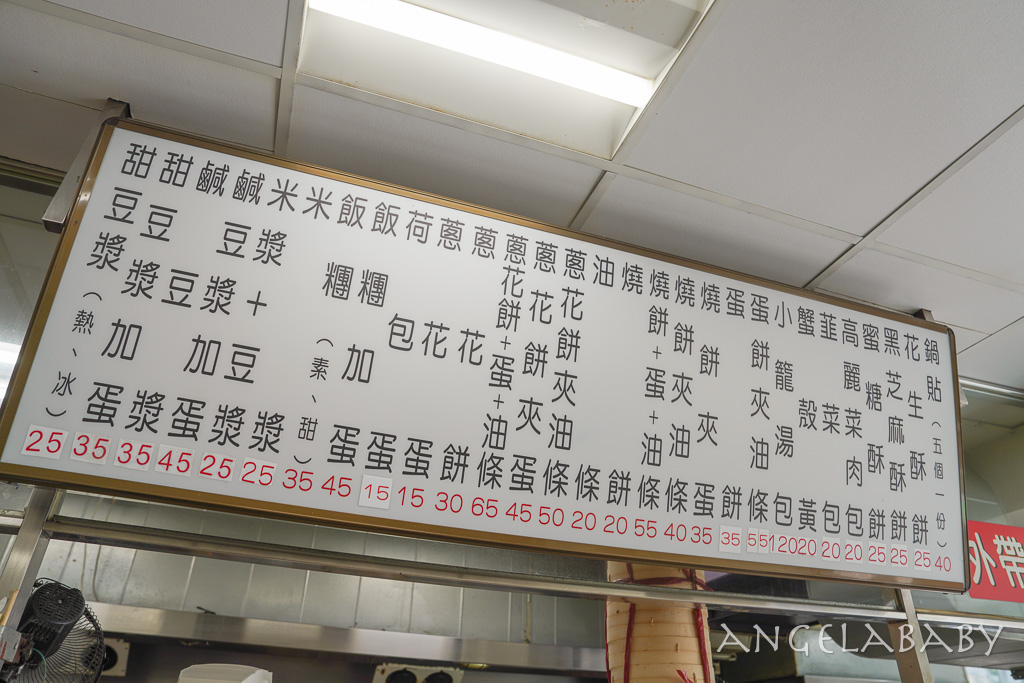 甜豆漿（熱、冰） 25
甜豆漿加蛋 35
鹹豆漿 35
鹹豆漿加蛋 45
米漿 25
米漿+豆漿 25
飯糰（素、甜） 35
飯糰加蛋 45
荷包蛋 15
蔥花蛋 15
蔥花餅 30
蔥花餅+蛋+油條 65
蔥花餅夾蛋 45
蔥花餅夾油條 50
油條 20
燒餅 20
燒餅+蛋+油條 55
燒餅夾油條 40
燒餅夾蛋 35
蛋餅 35
蛋餅夾油條 55
小籠湯包 120
蟹殼黃 20
韮菜包 20
高麗菜肉包 20
蜜糖酥餅 25
黑芝麻酥餅 25
花生酥餅 25
鍋貼（五個一份） 40
外帶
ANGELABABY